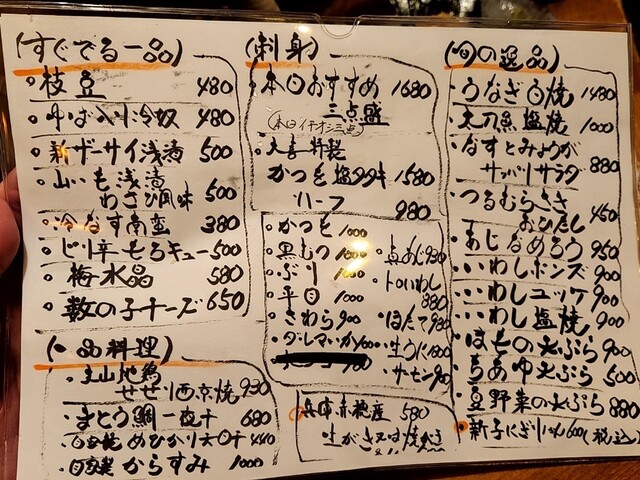 (すぐでる一品)
・枝豆 480
・ゆば入り冷奴 480
・新ザーサイ浅漬 500
・山いも浅漬
わさび風味 500
・冷なす南蛮 380
・ピリ辛もろキュー 500
・梅水晶 580
・数の子チーズ 650
(一品料理)
地鶏
せせり西京焼 930
・まとう鯛一夜干 680
・自家製めひかり丸干 440
・自家製からすみ 1000
(刺身)
・本日おすすめ 1680
三点盛
(本日イチオシ三点)
・大喜特製
かつを塩タタキ 1580
ハーフ 980
・かつを 1000
・黒むつ 1000
・ぶり 1000
・平目 1000
・さわら 900
・ダルマいか 1000
・点あじ 930
・トロいわし
880
・ほたて 980
・生うに 1800
・サーモン 900
兵庫赤穂産 580
生がき又は焼がき
(旬の逸品)
・うなぎ白焼 1480
・太刀魚塩焼 1000
・なすとみょうが
サッパリサラダ 880
・つるむらさき
おひたし 450
・あじなめろう 950
・いわしポンズ 900
・いわしユッケ 900
・いわし塩焼 900
・はもの天ぷら 900
・ちあゆ天ぷら 500
・豆野菜の天ぷら 880
・新子にぎり 600(税込)